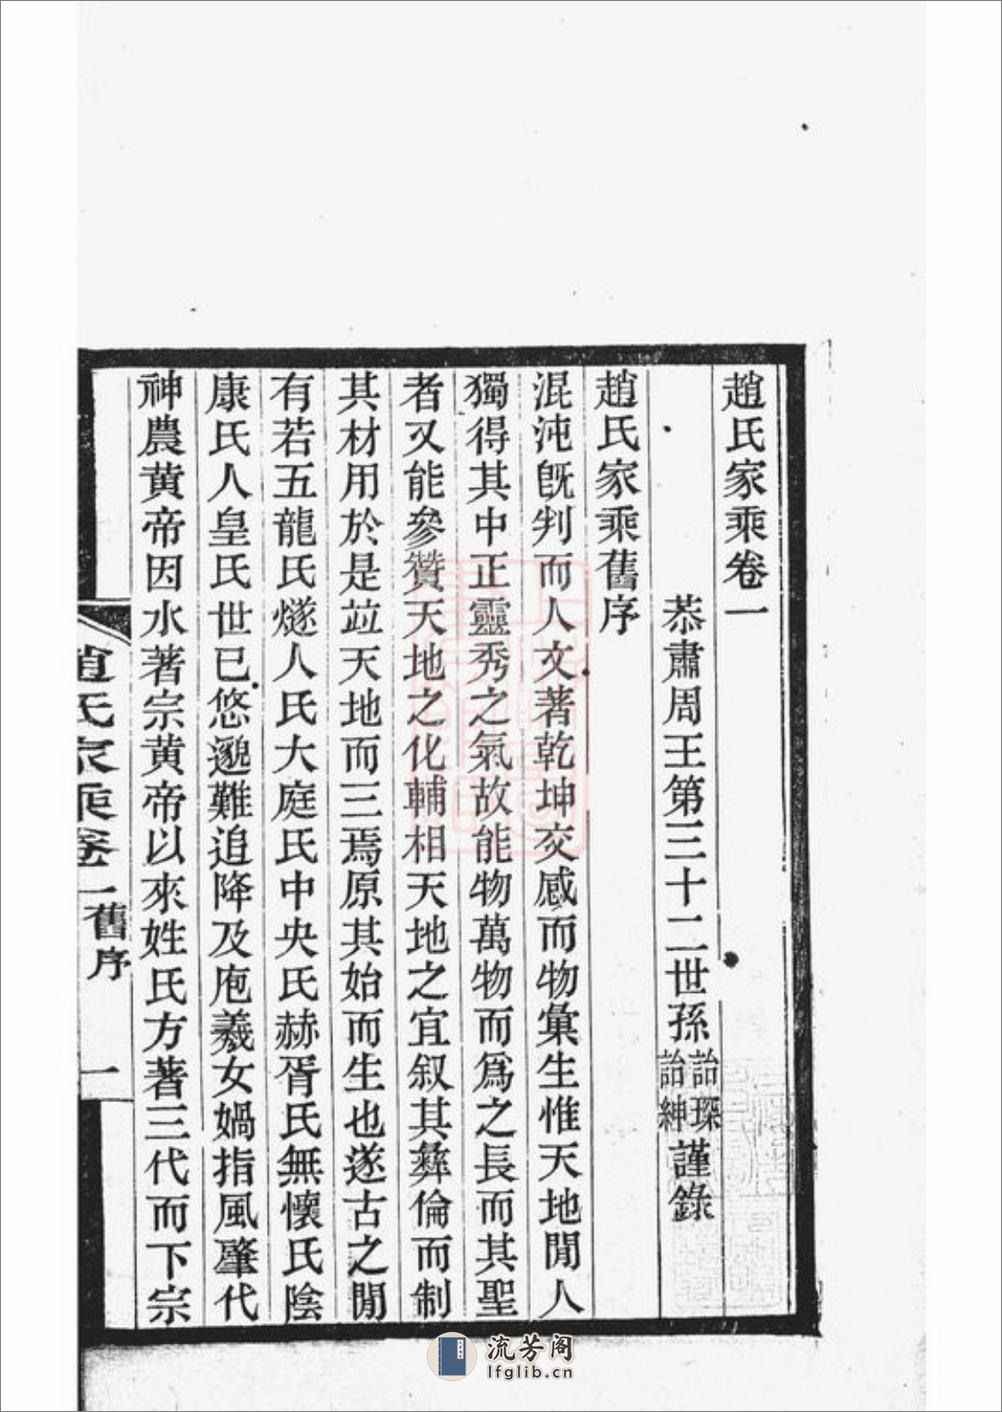 趙氏家乘卷一
恭肅周王第三十二世孫詒琛詒紳謹錄
趙氏家乘舊序
混沌旣判而人文著乾坤交感而物彙生惟天地閒人
獨得其中正靈秀之氣故能物萬物而爲之長而其聖
者又能參贊天地之化輔相天地之宜叙其彝倫而制
其材用於是竝天地而三焉原其始而生也遂古之閒
有若五龍氏燧人氏大庭氏中央氏赫胥氏無懷氏陰
康氏人皇氏世已悠邈難追降及庖羲女媧指風肇代
神農黄帝因水著宗黄帝以來姓氏方著三代而下宗
趙氏家乘卷一 舊序 一
流芳阁
lfglib.cn